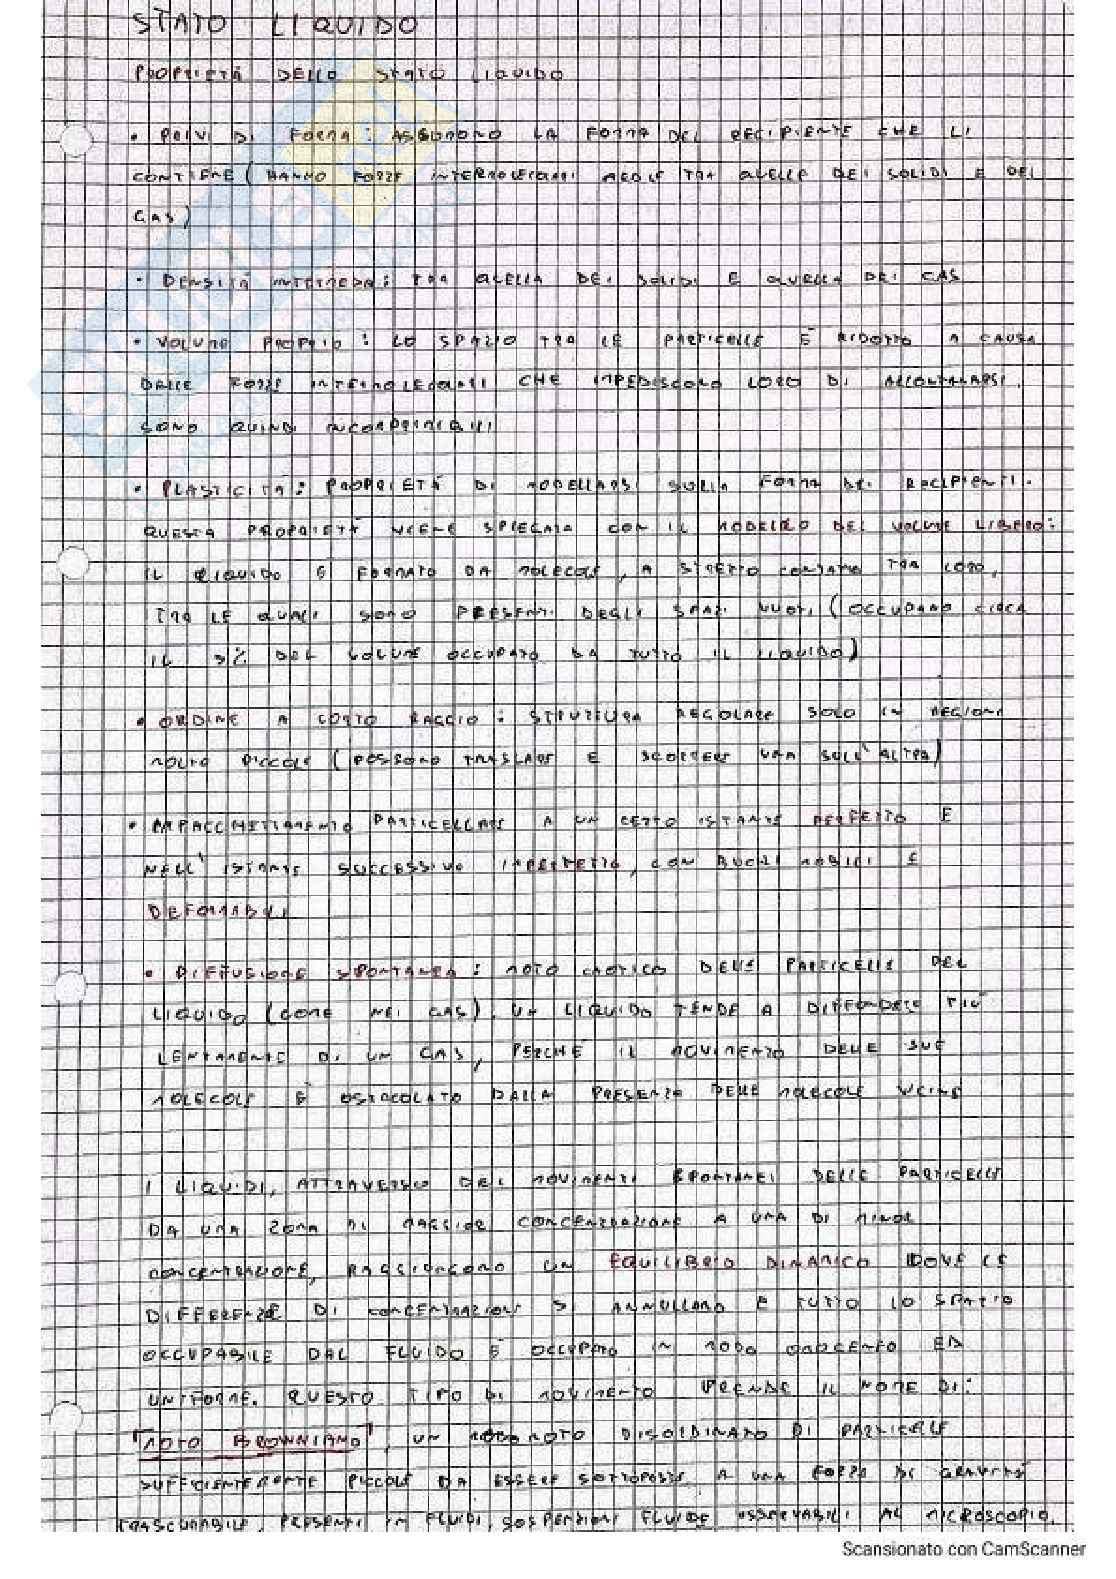 STATO LIQUIDO
PROPRIETÀ DELLO STATO LIQUIDO
• PRIVI DI FORMA: ASSUMONO LA FORMA DEL RECIPIENTE CHE LI
CONTIENE (HANNO FORZE INTERMOLECOLARI TRA QUELLE DEI SOLIDI E DEI
GAS)
• DENSITÀ INTERMEDIA: TRA QUELLA DEI SOLIDI E QUELLA DEI GAS
• VOLUME PROPRIO: LO SPAZIO TRA LE PARTICELLE È RIDOTTO A CAUSA
DELLE FORZE INTERMOLECOLARI CHE IMPEDISCOLO LORO DI ALLONTANARSI.
SONO QUINDI INCOMPRIMIBILI
• PLASTICITÀ: PROPRIETÀ DI MODELLARSI SULLA FORMA DEI RECIPIENTI.
QUESTA PROPRIETÀ VIENE SPIEGATA CON IL MODELLO DEL VOLUME LIBERO:
IL LIQUIDO È FORMATO DA MOLECOLE, A STRETTO CONTATTO TRA LORO,
TRA LE QUALI SONO PRESENTI DEGLI SPAZI VUOTI (OCCUPANO CIRCA
IL 3% DEL VOLUME OCCUPATO DA TUTTO IL LIQUIDO)
• ORDINE A CORTO RAGGIO: STRUTTURA REGOLARE SOLO IN REGIONI
MOLTO PICCOLE (POSSONO TRASLARE E SCORRERE UNA SULL'ALTRA)
• IMPACCHETTAMENTO PARTICELLARE A UN CERTO ISTANTE PERFETTO E
NELL'ISTANTE SUCCESSIVO IMPERFETTO, CON BUCHI MOBILI E
DEFORMABILI
• DIFFUSIONE SPONTANEA: MOTO CAOTICO DELLE PARTICELLE DEL
LIQUIDO (COME NEI GAS). UN LIQUIDO TENDE A DIFFONDERE PIÙ
LENTAMENTE DI UN GAS, PERCHÈ IL MOVIMENTO DELLE SUE
MOLECOLE È OSTACOLATO DALLA PRESENZA DELLE MOLECOLE VICINE
I LIQUIDI, ATTRAVERSO DEI MOVIMENTI SPONTANEI DELLE PARTICELLE
DA UNA ZONA DI MAGGIOR CONCENTRAZIONE A UNA DI MINOR
CONCENTRAZIONE, RAGGIUNGONO UN EQUILIBRIO DINAMICO DOVE LE
DIFFERENZE DI CONCENTRAZIONE SI ANNULLANO E TUTTO LO SPAZIO
OCCUPABILE DAL FLUIDO È OCCUPATO IN MODO ED
UNIFORME. QUESTO TIPO DI MOVIMENTO PRENDE IL NOME DI:
"MOTO BROWNIANO", UN MOTO DISORDINATO DI PARTICELLE
SUFFICIENTEMENTE PICCOLE DA ESSERE SOTTOPOSTE A UNA FORZA DI GRAVITÀ
TRASCURABILE, PRESENTI IN FLUIDI, SOSPENSIONI FLUIDE OSSERVABILI AL MICROSCOPIO.
Scansionato con CamScanner